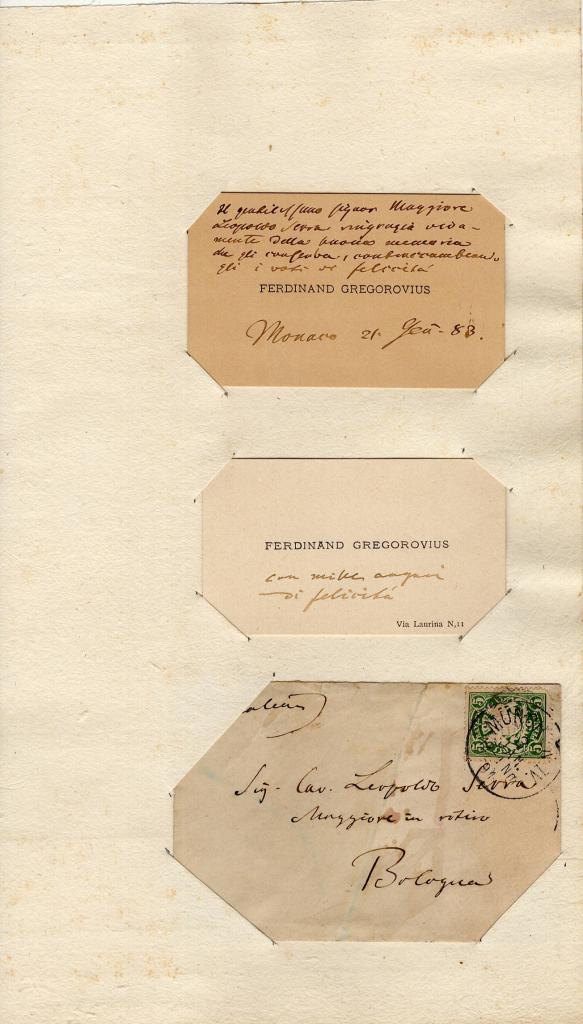 Il gentilissimo Signor Maggiore
Leopoldo Serra ringrazia viva-
mente della buona memoria
che gli conserva, contraccambian-
gli i voti di felicitá
FERDINAND GREGOROVIUS
Monaco 21. Gen - 83.
FERDINAND GREGOROVIUS
con mille auguri
di felicitá
Via Laurina N,11
5 5
MÜN
5 5
Sig. Cav. Leopoldo Serra
Maggiore in ritiro
Bologna